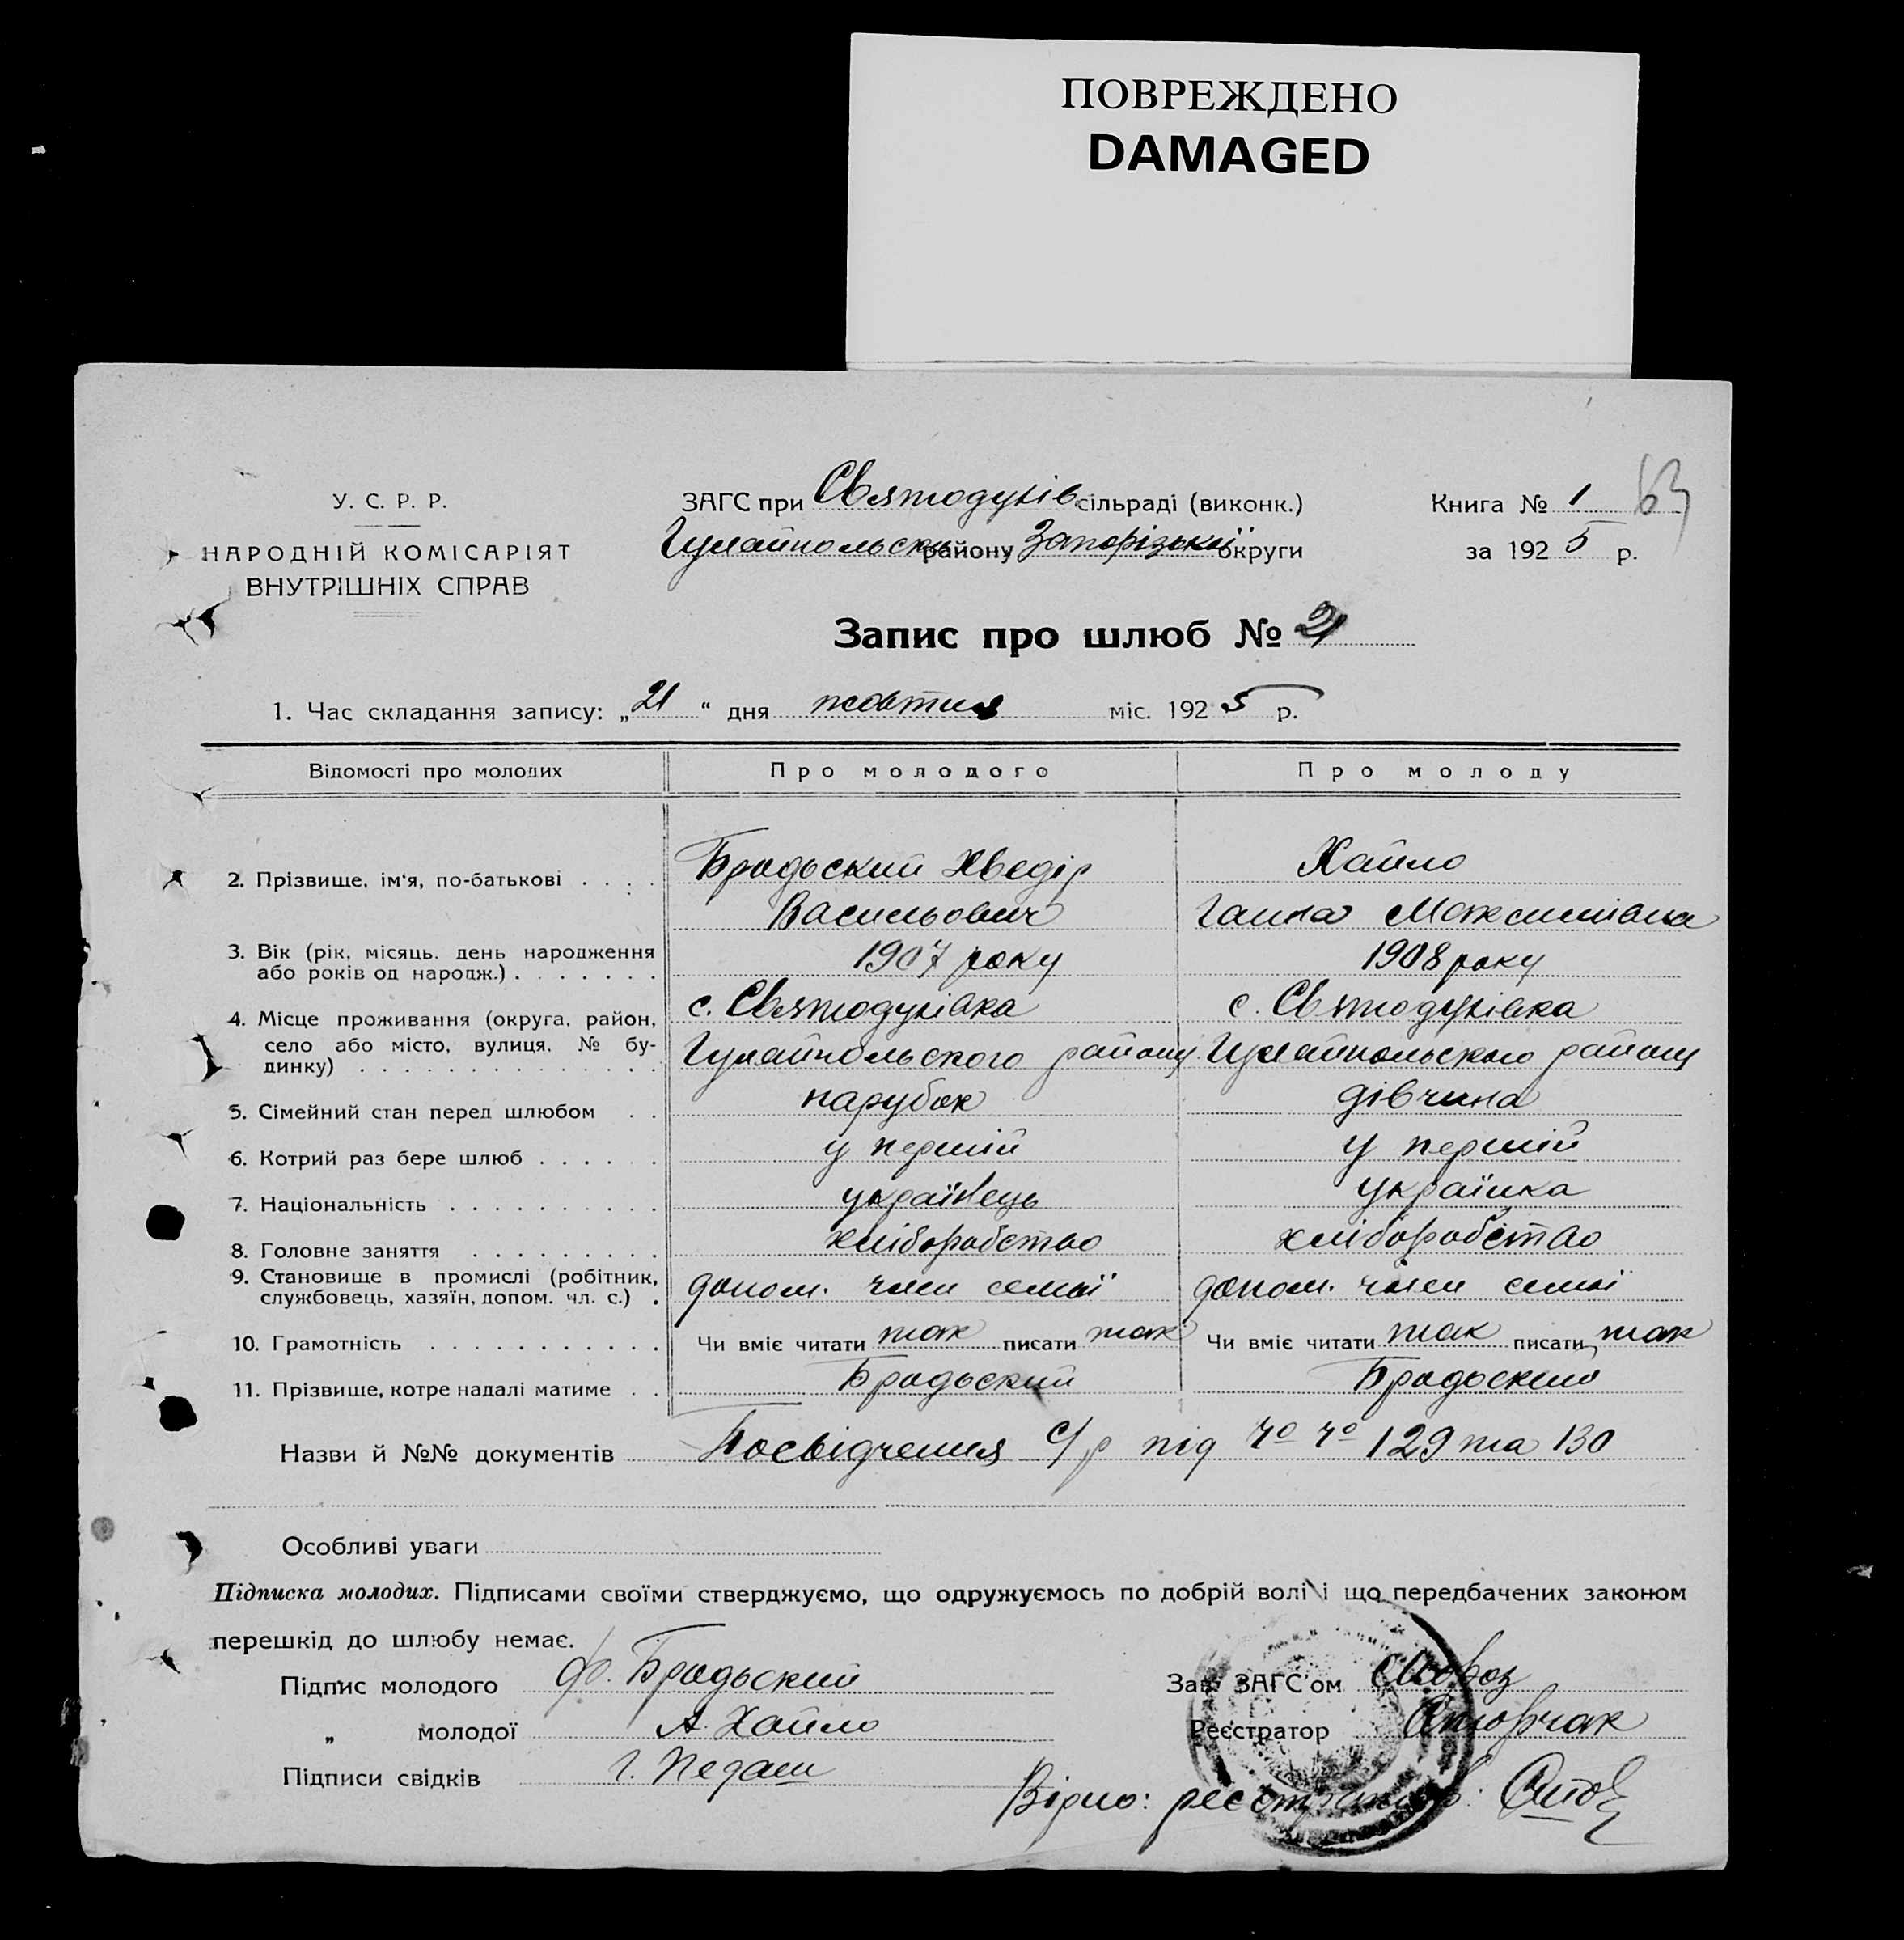 ПОВРЕЖДЕНО
DAMAGED
У. С. Р. Р.
НАРОДНІЙ КОМІСАРІЯТ
ВНУТРІШНІХ СПРАВ
ЗАГС при Святодухів. сільраді (виконк.)
Гуляйпольськ району Запорізької округи
Книга № 1 63
за 1925 р.
Запис про шлюб № 21
1. Час складання запису: „21“ дня жовтня міс. 1925 р.
Відомості про молодих Про молодого Про молоду
2. Прізвище, ім‘я, по-батькові . . . . Бродьский Хведір Хайло
Васильович Ганна Максимівна
3. Вік (рік, місяць, день народження
або років од народж.) . . . . . . . 1907 року 1908 року
4. Місце проживання (округа, район,
село або місто, вулиця, № бу-
динку) . . . . . . . . . . . . . .
с. Святодухівка с. Святодухівка
Гуляйпольского району Гуляйпольского району
5. Сімейний стан перед шлюбом . . парубок дівчина
6. Котрий раз бере шлюб . . . . . . у перший у перший
7. Національність . . . . . . . . . . українець українка
8. Головне заняття . . . . . . . . . хліборобство хліборобство
9. Становище в промислі (робітник,
службовець, хазяїн, допом. чл. с.) . допом. член семьї допом. член семьї
10. Грамотність . . . . . . . . . . . Чи вміє читати так писати так Чи вміє читати так писати так
11. Прізвище, котре надалі матиме . . Бродьский Бродьский
Назви й №№ документів Посвідчення с/р під № № 129 та 130
Особливі уваги
Підписка молодих. Підписами своїми стверджуємо, що одружуємось по добрій волі і що передбачених законом
перешкід до шлюбу немає.
Підпис молодого Ф. Бродьский
„ молодої А. Хайло
Підписи свідків Г. Педаш
Зав. ЗАГС‘ом
Реєстратор
Вірно: реєстратор: